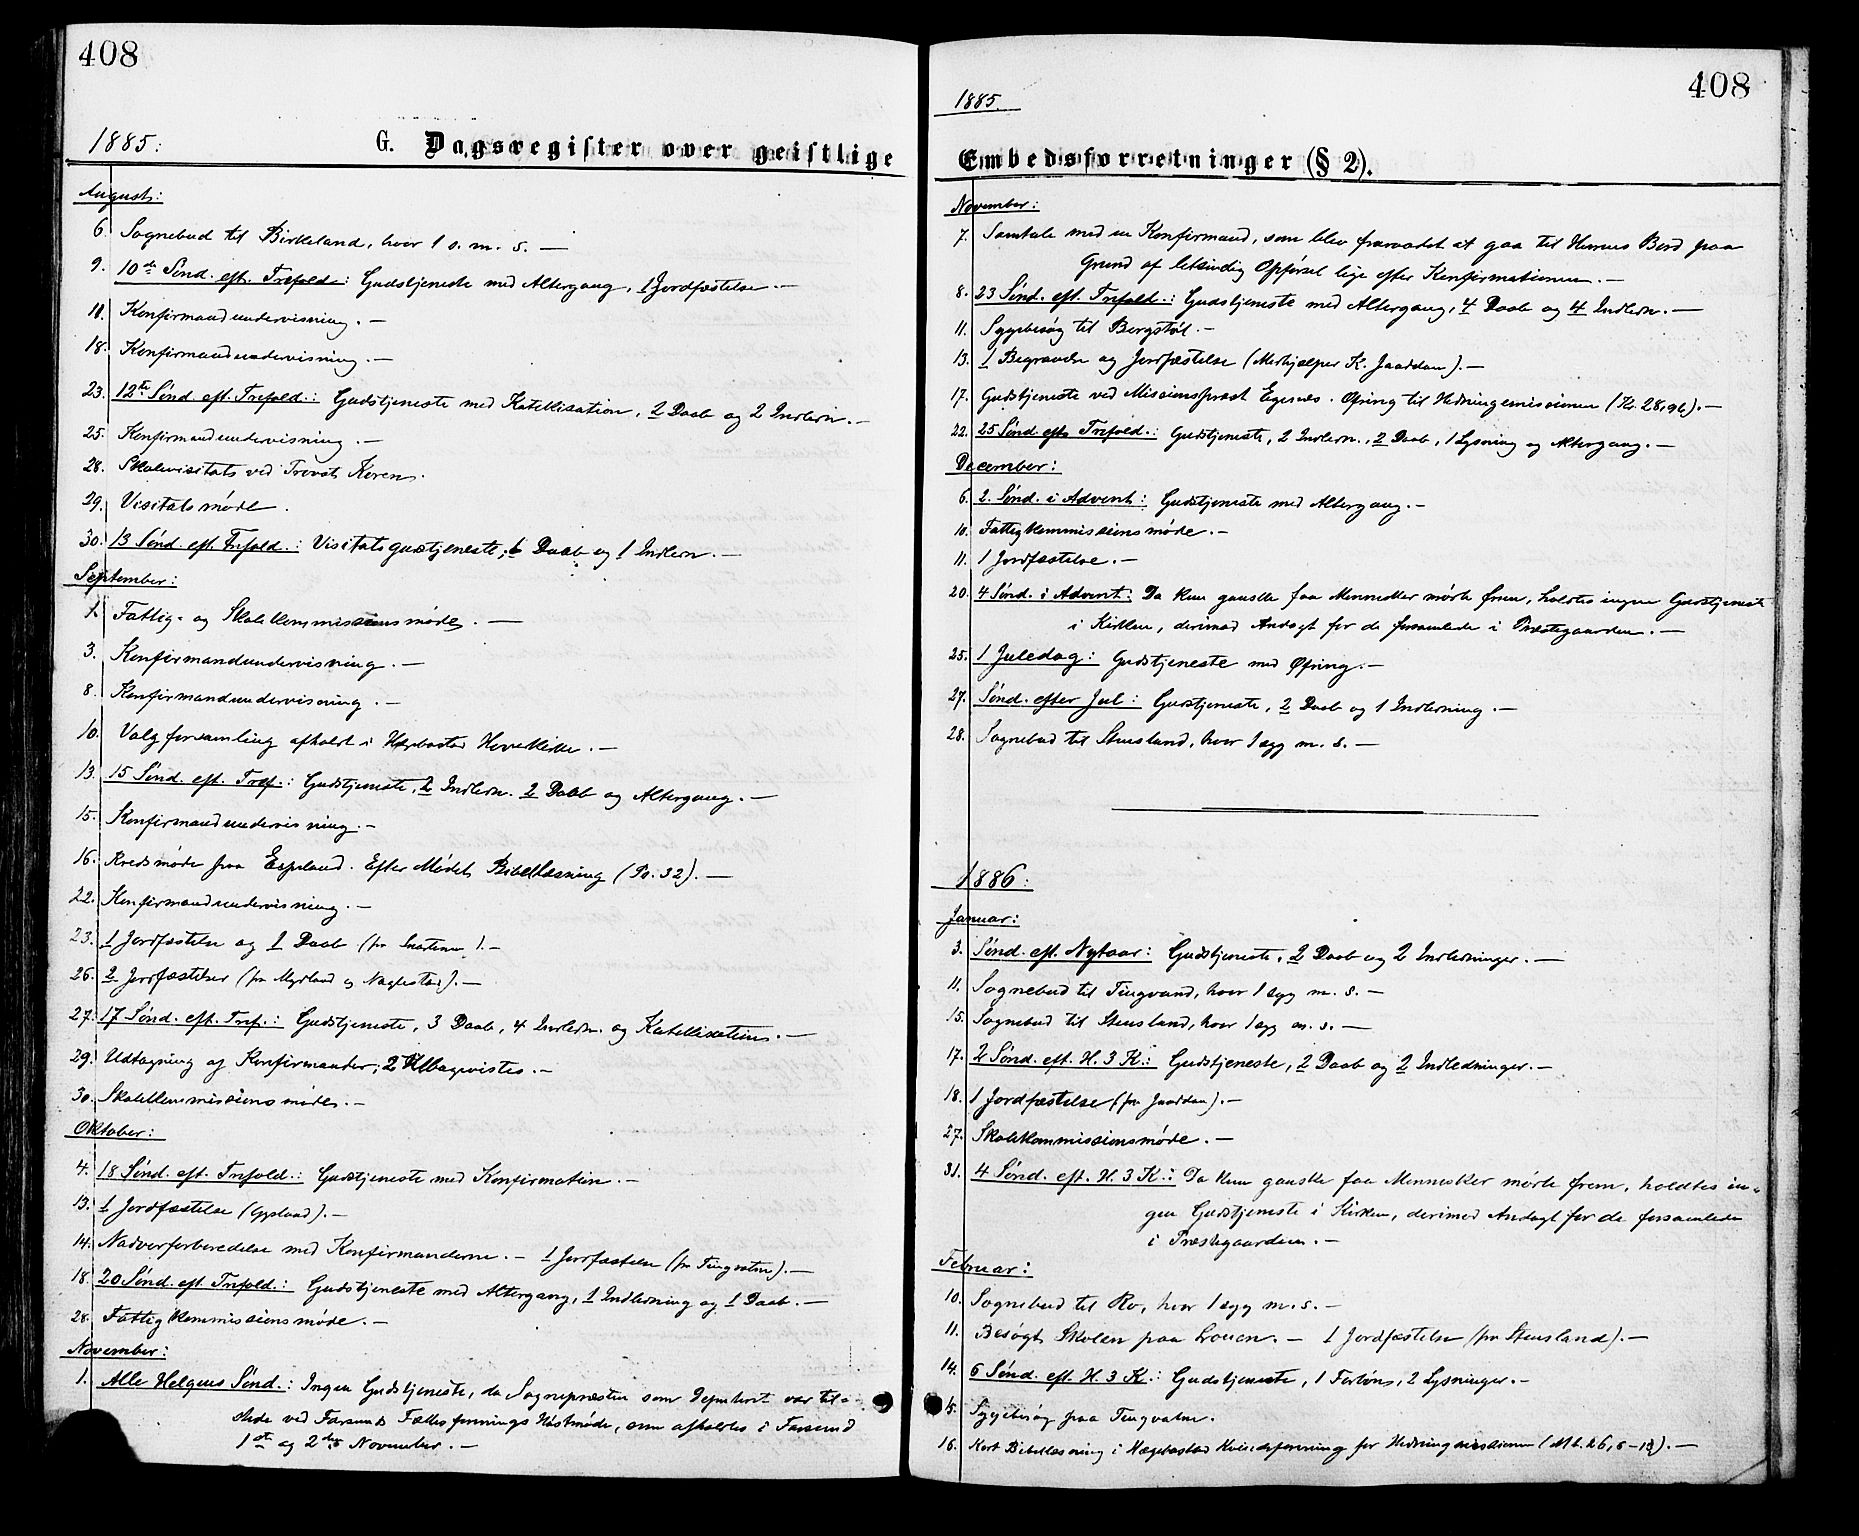 408
1885:
G. Dagsregister over geistlige
August:
6. Sognebud til Birkeland, hvor 1 s. m. s. —
9. 10de Sønd. eft. Trefold.: Gudstjeneste med Altergang, 1 Jordfæstelse. —
11. Konfirmandundervisning. —
18. Konfirmandundervisning. —
23. 12te Sønd. eft. Trefold.: Gudstjeneste med Katekisation, 2 Daab og 2 Indledn. —
25. Konfirmandundervisning. —
28. Skolevisitats ved Provst Koren.
29. Visitatsmøde.
30. 13 Sønd. eft. Trefold.: Visitatsgudstjeneste, 6 Daab og 1 Indledn. —
September:
1. Fattig- og Skolekommissionsmøde. —
3. Konfirmandundervisning. —
8. Konfirmandundervisning. —
10. Valgforsamling afholdt i Hægebostad Hovedkirke. —
13. 15 Sønd. eft. Tref.: Gudstjeneste, 2 Indledn. 2 Daab og Altergang. —
15. Konfirmandundervisning. —
16. Kredsmøde paa Espeland. Efter Mødet Bibellæsning (Ps. 32). —
22. Konfirmandundervisning. —
23. 1 Jordfæstelse og 1 Daab (fra ). —
26. 2 Jordfæstelser (fra Myrland og Naglestad). —
27. 17 Sønd. eft. Tref.: Gudstjeneste, 3 Daab, 4 Indledn. og Katekisation. —
29. Udtagning af Konfirmander; 2 tilbagevistes. —
30. Skolekommissionsmøde. —
Oktober:
4. 18 Sønd. eft. Trefold.: Gudstjeneste med Konfirmation. —
13. 1 Jordfæstelse (). —
14. Nadverforberedelse med Konfirmanderne. — 1 Jordfæstelse (fra Tingvatn). —
18. 20 Sønd. eft. Trefold.: Gudstjeneste med Altergang, 1 Indledning og 1 Daab. —
28. Fattigkommissionsmøde. —
November:
1. Alle Helgens Sønd.: Ingen Gudstjeneste, da Sognepræsten som Deputeret var til-
stede ved Farsunds Fællesforenings Høstmøde, som afholdtes i Farsund
1ste og 2den November. —
408
1885.
Embedsforretninger (§ 2).
November:
7. Samtale med en Konfirmand, som blev fraraadet at gaa til Herrens Bord paa
Grund af letsindig Opførsel lige efter Konfirmationen. —
8. 23 Sønd. eft. Trefold.: Gudstjeneste med Altergang, 4 Daab og 4 Indledn. —
11. Sygebesøg til Bergstøl. —
13. 1 Begravelse og Jordfæstelse (Medhjælper K. Jaaddan). —
17. Gudstjeneste ved Missionsprest Egenæs. Ofring til Hedningemissionen (Kr. 28,96). —
22. 25 Sønd. eft. Trefold.: Gudstjeneste, 2 Indledn., 2 Daab, 1 Lysning og Altergang. —
December:
6. 2. Sønd. i Advent: Gudstjeneste med Altergang. —
10. Fattigkommissionsmøde. —
11. 1 Jordfæstelse. —
20. 4 Sønd. i Advent: Da kun ganske faa Mennesker mødte frem, holdtes ingen Gudstjeneste
i Kirken, derimod Andagt for de forsamlede i Præstegaarden. —
25. 1 Juledag: Gudstjeneste med Ofring. —
27. Sønd. efter Jul: Gudstjeneste, 2 Daab og 1 Indledning. —
28. Sognebud til Stensland, hvor 1 syg m. s. —
1886:
Januar:
3. Sønd. eft. Nytaar: Gudstjeneste, 2 Daab og 2 Indledninger. —
11. Sognebud til Tingvand, hvor 1 syg m. s. —
15. Sognebud til Stensland, hvor 1 syg m. s. —
17. 2 Sønd. eft. H. 3 K.: Gudstjeneste, 2 Daab og 2 Indledninger. —
18. 1 Jordfæstelse (fra Jaaddan). —
27. Skolekommissionsmøde. —
31. 4 Sønd. eft. H. 3 K.: Da kun ganske faa Mennesker mødte frem, holdtes in-
gen Gudstjeneste i Kirken, derimod Andagt for de forsamlede
i Præstegaarden. —
Februar:
10. Sognebud til Ro, hvor 1 syg m. s. —
11. Besøgt Skolen paa . — 1 Jordfæstelse (fra Stensland). —
14. 6 Sønd. eft. H. 3 K.: Gudstjeneste, 1 Forbøn, 2 Lysninger. —
15. Sygebesøg paa Tingvatne.
16. Kort Bibellæsning i Hægebostad Kvindeforening for Hedningmissionen (Mt. 26, 6–13). —